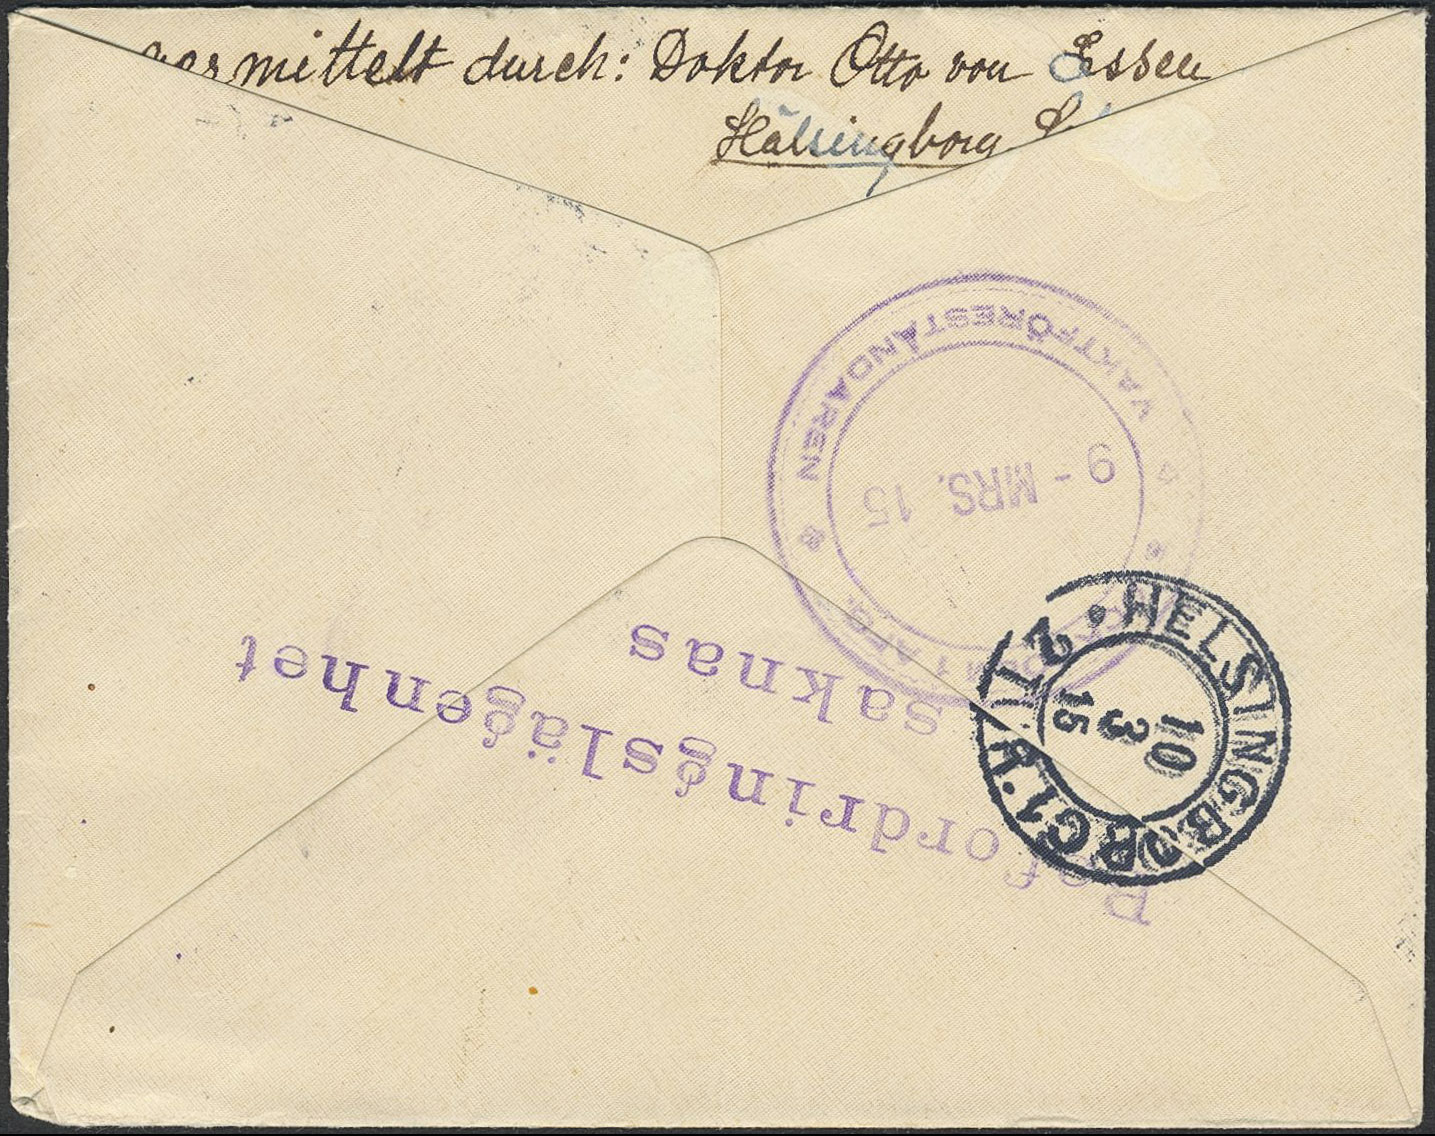 vermittelt durch: Doktor Otto von Essen
Hälsingborg
VAKTFÖRESTÅNDAREN
9 - MRS. 15
1 AFG.
HELSINGBORG 1 · 
10
3
15
Befordringslägenhet
saknas